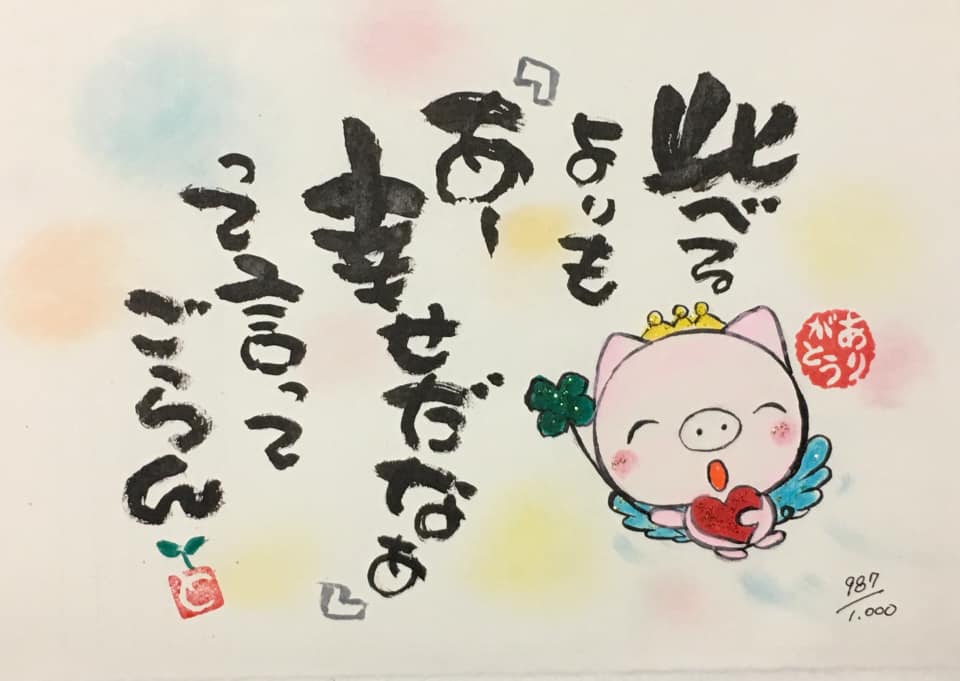 比べる
よりも
『あー
幸せだなぁ』
って言って
ごらん
と
ありがとう
987/1.000